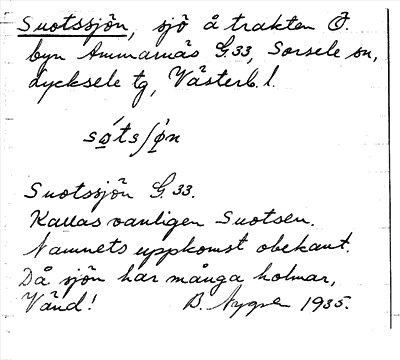 Suotssjön, sjö å trakten Ö.
byn Ammarnäs G.33, Sorsele sn,
Lycksele tg, Västerb. l.
Suotssjön G.33.
Kallas vanligen Suotsen.
Namnets uppkomst obekant.
Då sjön har många holmar,
Vänd! B. Nygren 1935.